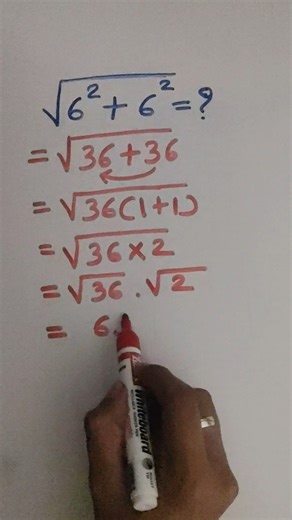 √6² + 6² = ?
= √36 + 36
= √36(1+1)
= √36 × 2
= √36 . √2
= 6.
Whiteboard